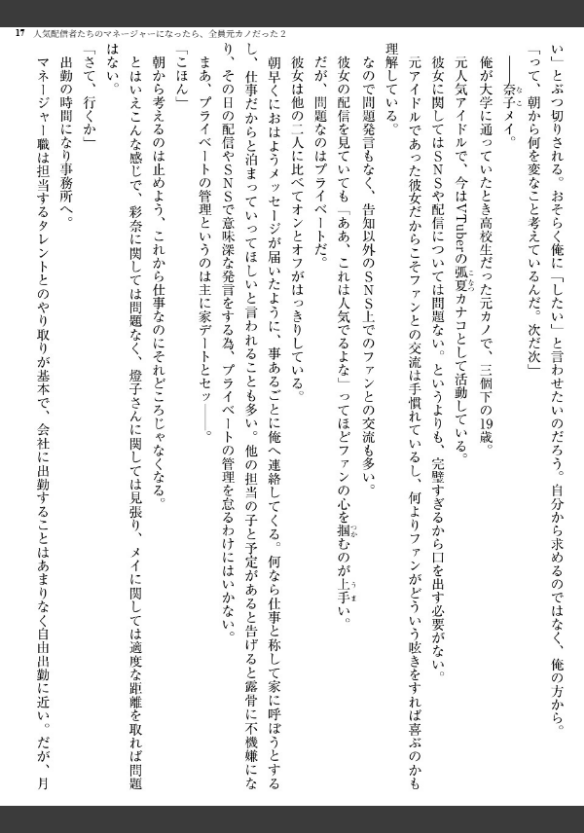 17 人気配信者たちのマネージャーになったら、全員元カノだった 2
い」とぶつ切りされる。おそらく俺に「したい」と言わせたいのだろう。自分から求めるのではなく、俺の方から。
「って、朝から何を変なこと考えているんだ。次だ次」
――奈子メイ。
俺が大学に通っていたとき高校生だった元カノで、三個下の19歳。
元人気アイドルで、今はVTuberの弧夏カナコとして活動している。
彼女に関してはSNSや配信については問題ない。というよりも、完璧すぎるから口を出す必要がない。
元アイドルであった彼女だからこそファンとの交流は手慣れているし、何よりファンがどういう呟きをすれば喜ぶのかも
理解している。
なので問題発言もなく、告知以外のSNS上でのファンとの交流も多い。
彼女の配信を見ていても「ああ、これは人気でるよな」ってほどファンの心を掴むのが上手い。
だが、問題なのはプライベートだ。
彼女は他の二人に比べてオンとオフがはっきりしている。
朝早くにおはようメッセージが届いたように、事あるごとに俺へ連絡してくる。何なら仕事と称して家に呼ぼうとする
し、仕事だからと泊まっていってほしいと言われることも多い。他の担当の子と予定があると告げると露骨に不機嫌にな
り、その日の配信やSNSで意味深な発言をする為、プライベートの管理を怠るわけにはいかない。
まあ、プライベートの管理というのは主に家デートとセッ――。
「こほん」
朝から考えるのは止めよう、これから仕事なのにそれどころじゃなくなる。
とはいえこんな感じで、彩奈に関しては問題なく、燈子さんに関しては見張り、メイに関しては適度な距離を取れば問題
はない。
「さて、行くか」
出勤の時間になり事務所へ。
マネージャー職は担当するタレントとのやり取りが基本で、会社に出勤することはあまりなく自由出勤に近い。だが、月